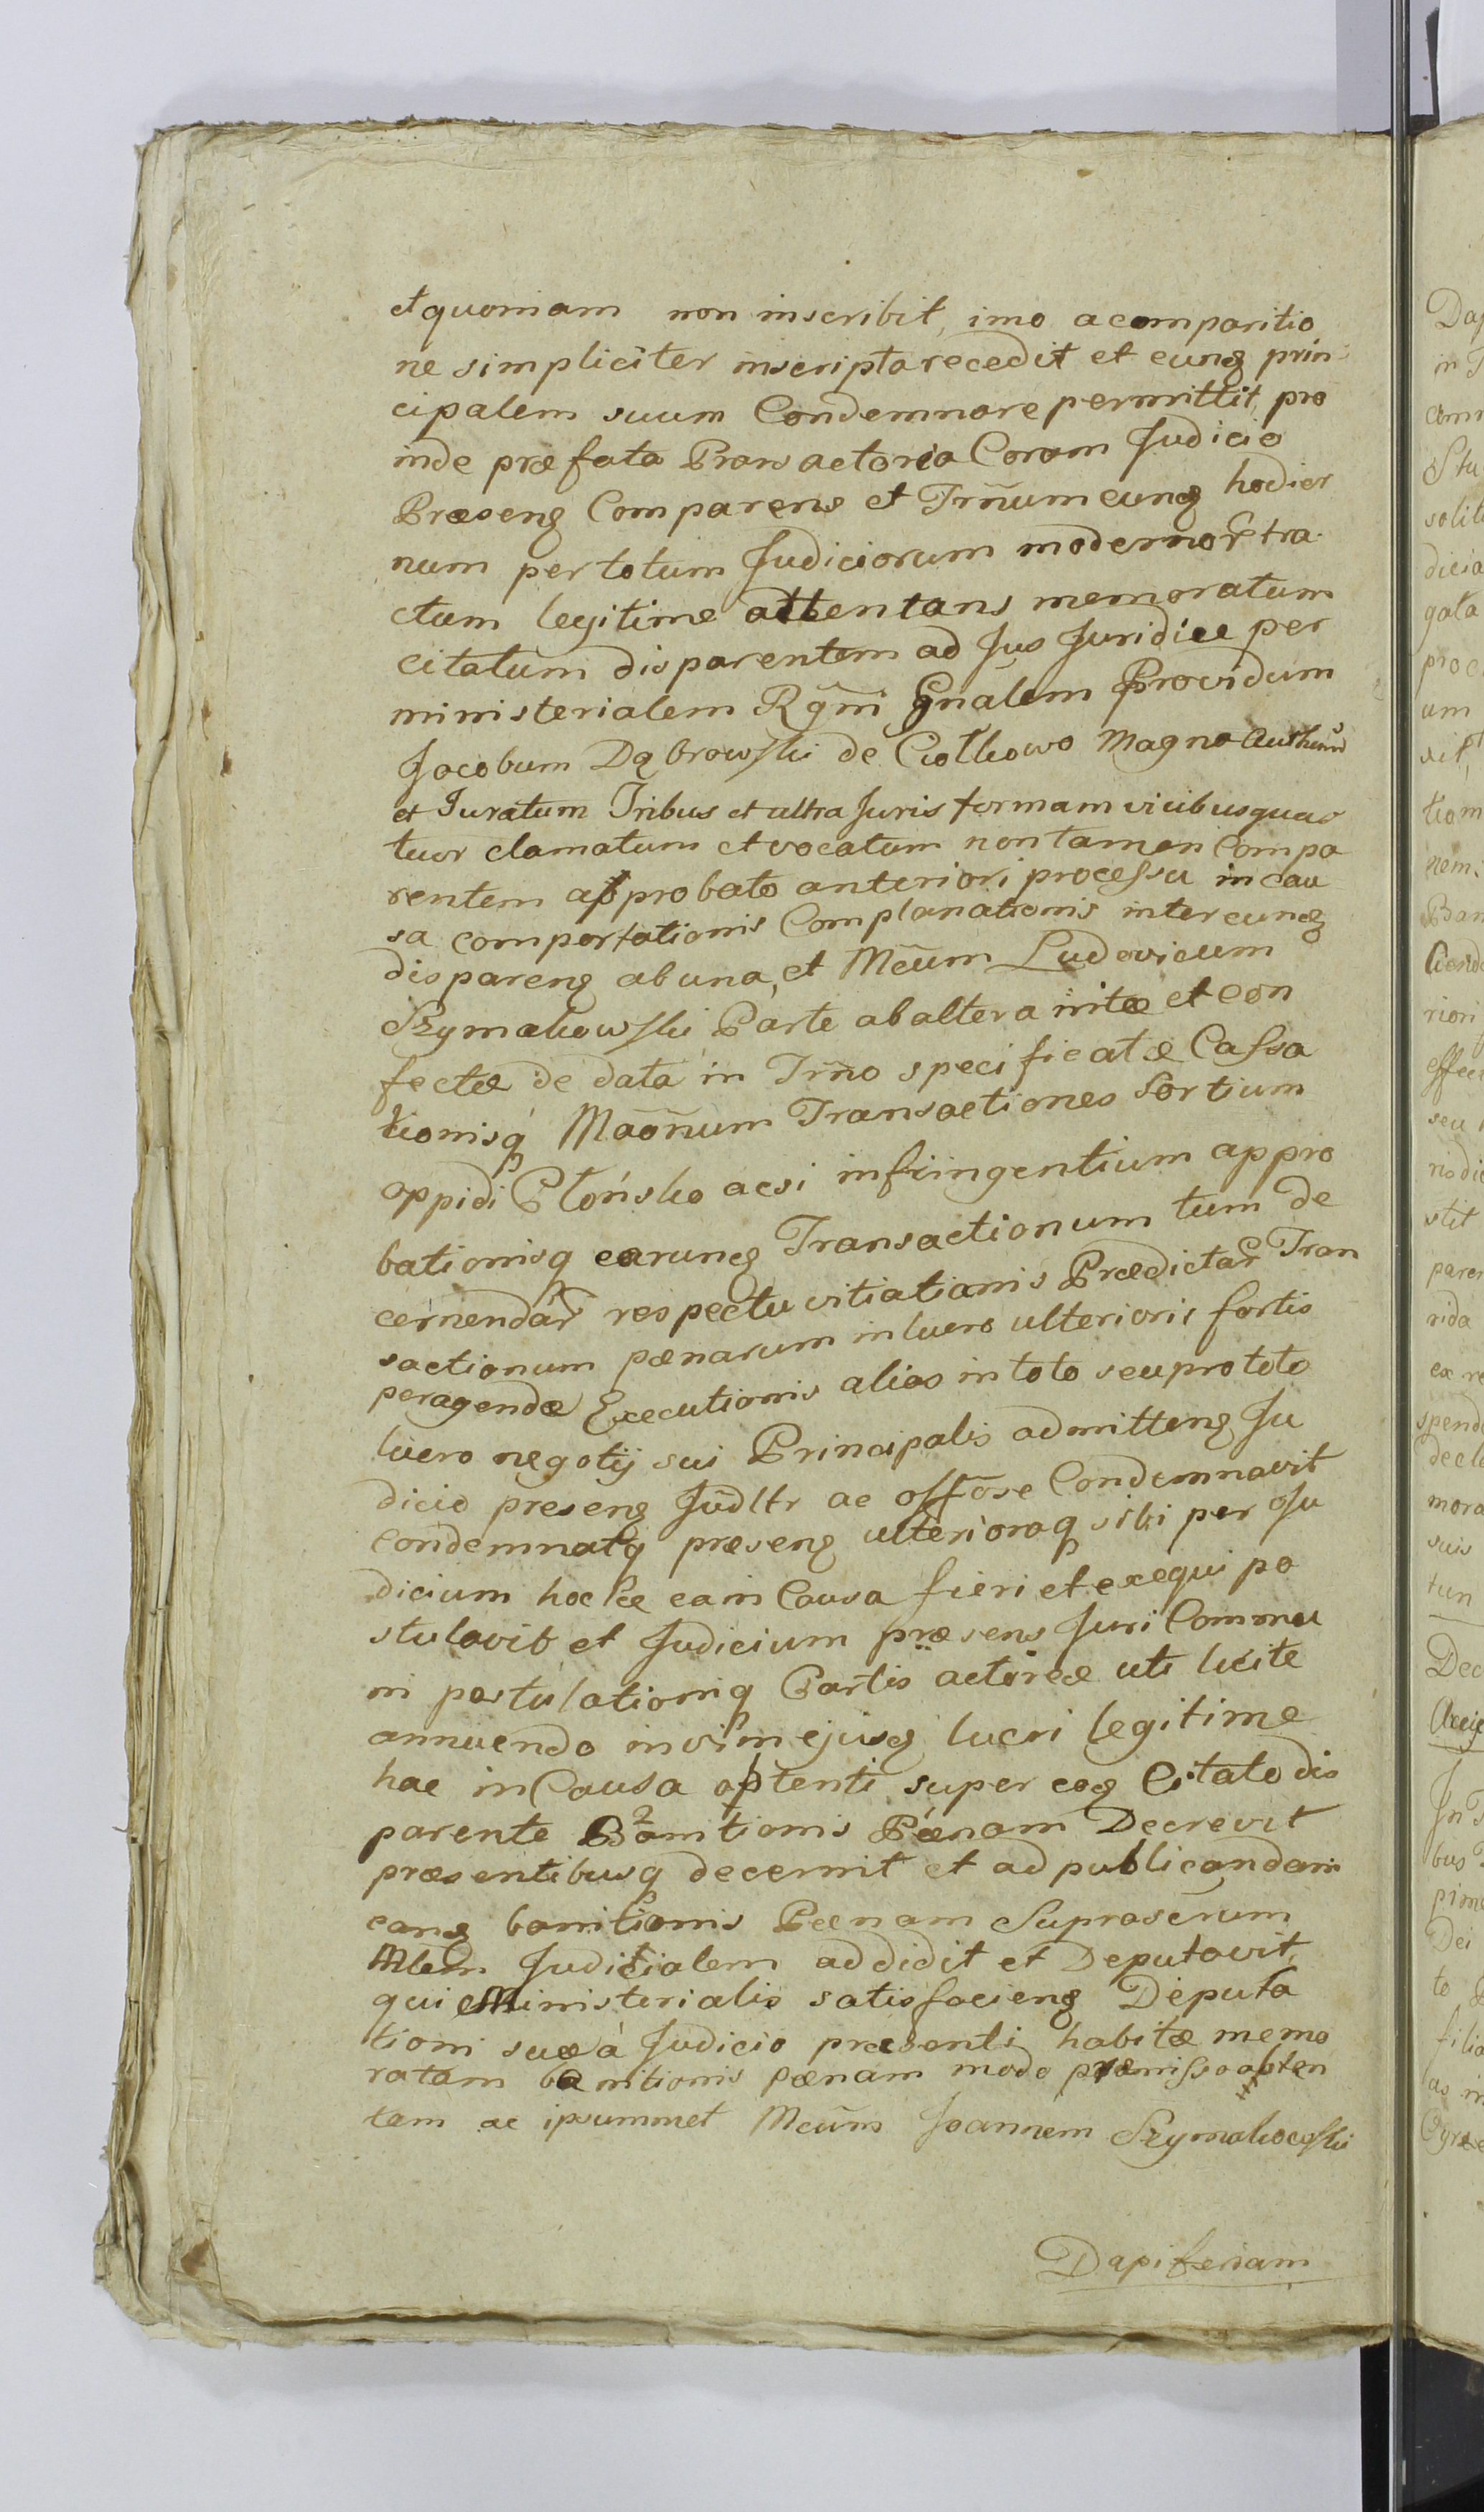 et quoniam non inscribit, imo a comparitio
ne simpliciter inscripta recedit et eunq prin-
cipalem suum Condemnare permittit, pro
inde præfata Pars actorea Coram Judicio
Præsenq Comparens et Trñum eunq hodier
num per totum Judiciorum modernor tra-
ctum legitime attentans memoratum
citatum disparentem ad Jus Juridice per
ministerialem Rgñi Gnalem Providum
Jacobum Dąbrowski de Ciołkowo Magno Authen
et Juratum Tribus et ultra Juris formam vicibus qua
tuor clamatum et vocatum non tamen Compa
rentem approbato anteriori processu in cau
sa comportationis Complanationis inter eunq
disparenq ab una, et Mcum Ludovicum
Szymakowski Parte ab altera initæ et con
fectæ de data in Trno specificatæ Cassa
tionisq Maonum Transactiones Sortium
oppidi Płońsko acsi infringentium appro
bationisq earunq Transactionum tum de
cernendar respectu vitiationis Prædictar Tran
sactionum pænarum in lucro ulterioris fortis
peragendæ Executionis alias in toto seu pro toto
lucro negotij sui Principalis admittenq Ju
dicio presenq Judltr ac offose Condemnavit
condemnatq præsenq ulterioraq sibi per Ju
dicium hocce ea in Causa fieri et exequi po
stulavit et Judicium præsens Juri Commu
ni postulationiq Partis actoreæ uti licite
annuendo in vim ejusq lucri legitime
hac in Causa obtenti super eoq Citato dis
parente Banitionis Pænam Decrevit
præsentibusq decernit et ad publicandam
eanq banitionis Pænam Supraserum
Mlem Juditialem addidit et Deputavit,
qui Ministerialis satisfacienq Deputa
tioni suæ à Judicio præsenti habitæ memo
ratam banitionis pænam modo præmisso obten
tam ac ipsummet Mcum Joannem Szymakowski
Dapiferiam